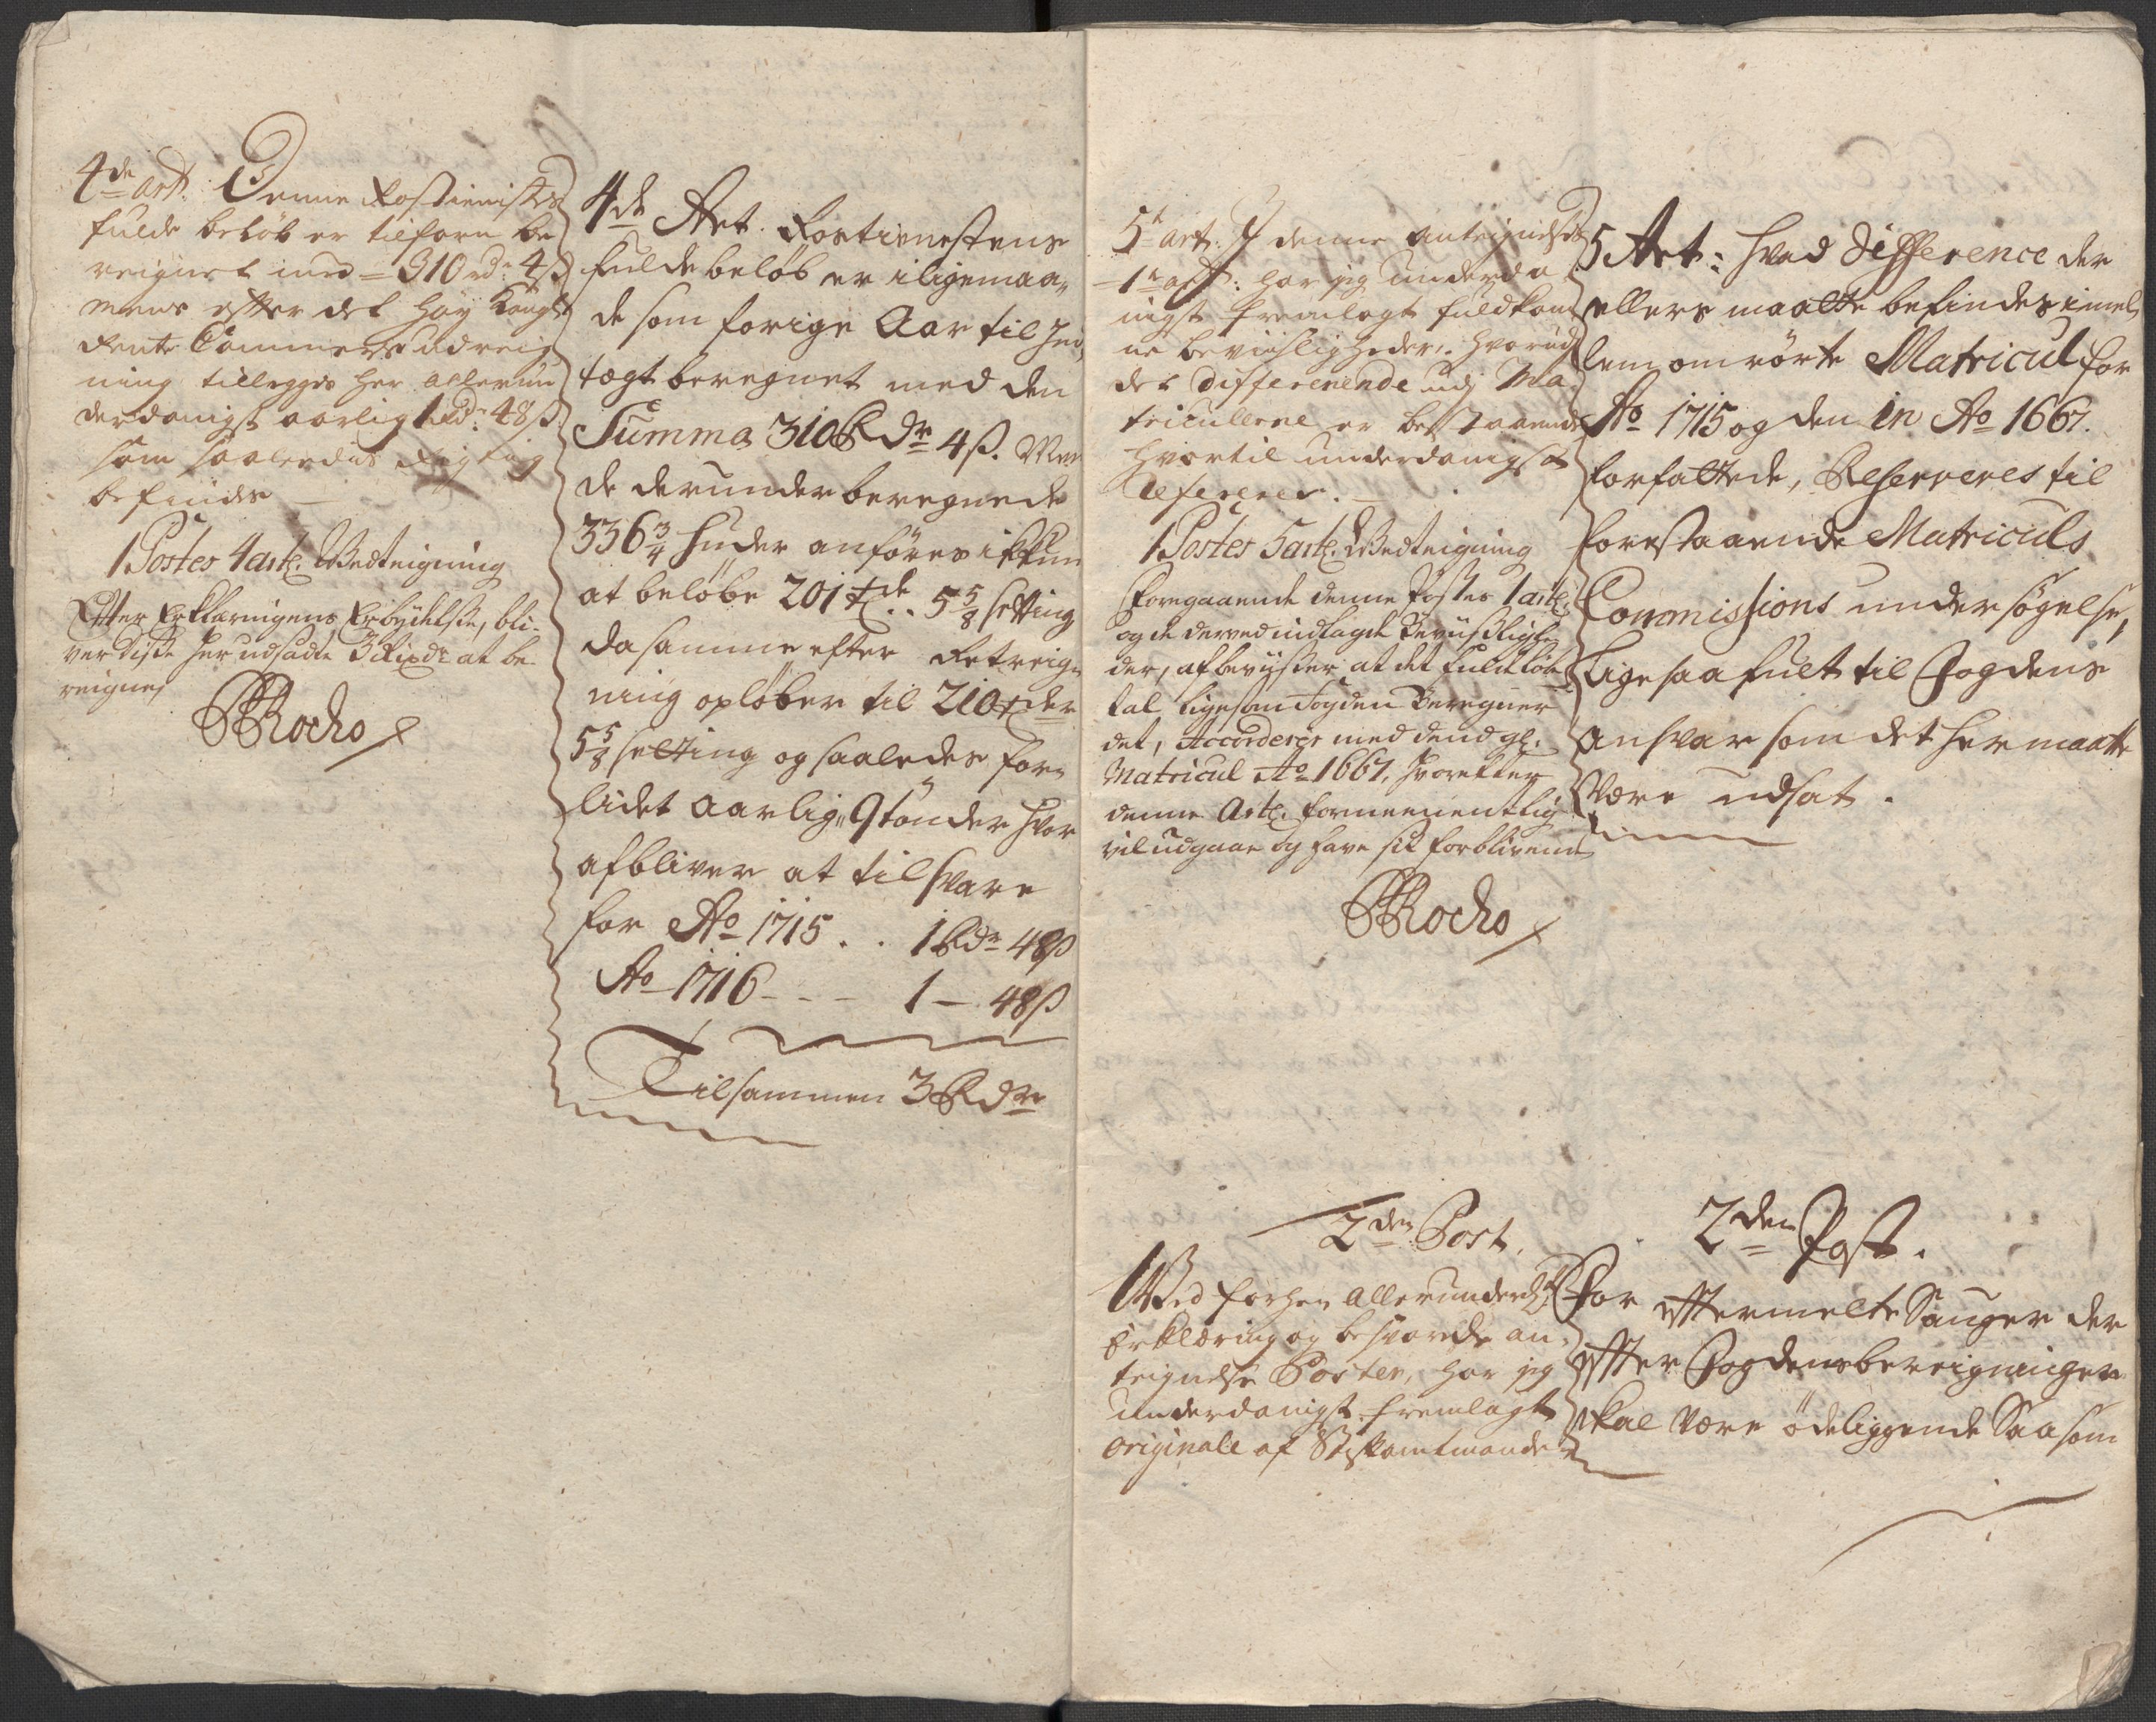 4de Art. Denne Rostienistes
fulde beløb er tilforn be
reignet med = 310 rdr 4 ß
mens efter det høy Kongl.
Rente Cammers Udreig
ning tillegges her allerun
derdanigst aarlig 1 rdr: 48 ß
som saaledes Rigtig
befindes
1 Postes 4 artl. Bedteigning
Efter Erklæringens Erbydelse, bli
ver disse her udsadte 3 Rixdr at be
reignes
Rocho
4de Art. Rostienestens
fulde beløb er iligemaa„
de som forige Aar til Ind„
tegt beregnet med den
Summa 310 Rdr 4 ß. Men
de derunder beregnede
336 3/4 huder anføres ikkun
at beløbe 201 tde .. 5 5/8 setting
da samme efter Retreig„
ning opløber til 210 tder
5 5/8 setting og saaledes for„
lidet aarlig„ 9 tønder hvor
afbliver at tilsvare
for Ao 1715 . . 1 Rdr 48 ß
Ao 1716 - - - 1 — 48 ß
Tilsammen 3 Rdr
5t art: I denne antegnelses
1te art: har jeg underda
nigst fremlagt fuldkom
ne bevisligheder, hvorud
det differerende udj Ma
triculerne er bestaaende
hvortil underdanigst
refererer.
1 Postes 5 artl. Bedteigning
Foregaaende denne Postes 1 artl
og de derved indlagde Beviisligheder
der, afbeviiser at det fulde løbe
tal, ligesom Fogden Beregner
det, Accorderer med dend gl.
Matricul Ao 1667, hvorefter
denne Artl. formeenentlig
vil udgaae og have sit forblivende
Rocho
5 Art: hvad Difference der
ellers maatte befindes imel
lem omrørte Matricul for
Ao 1715 og den in Ao 1667.
forfattede, Reserveres til
forestaaende Matriculs
Commissions undersøgelse,
ligesaa fult til Fogdens
ansvar som det her maatte
være udsat.
2den Post.
Ved forhen allerunderd:
Erklæring og besvarede an
teignelse Poster, har jeg
underdanigst fremlagt
originale af Stiftamtmande
2den Post.
For eftermelte Sauger der
efter Fogdens bereigninger
skal være ødeliggende Saasom